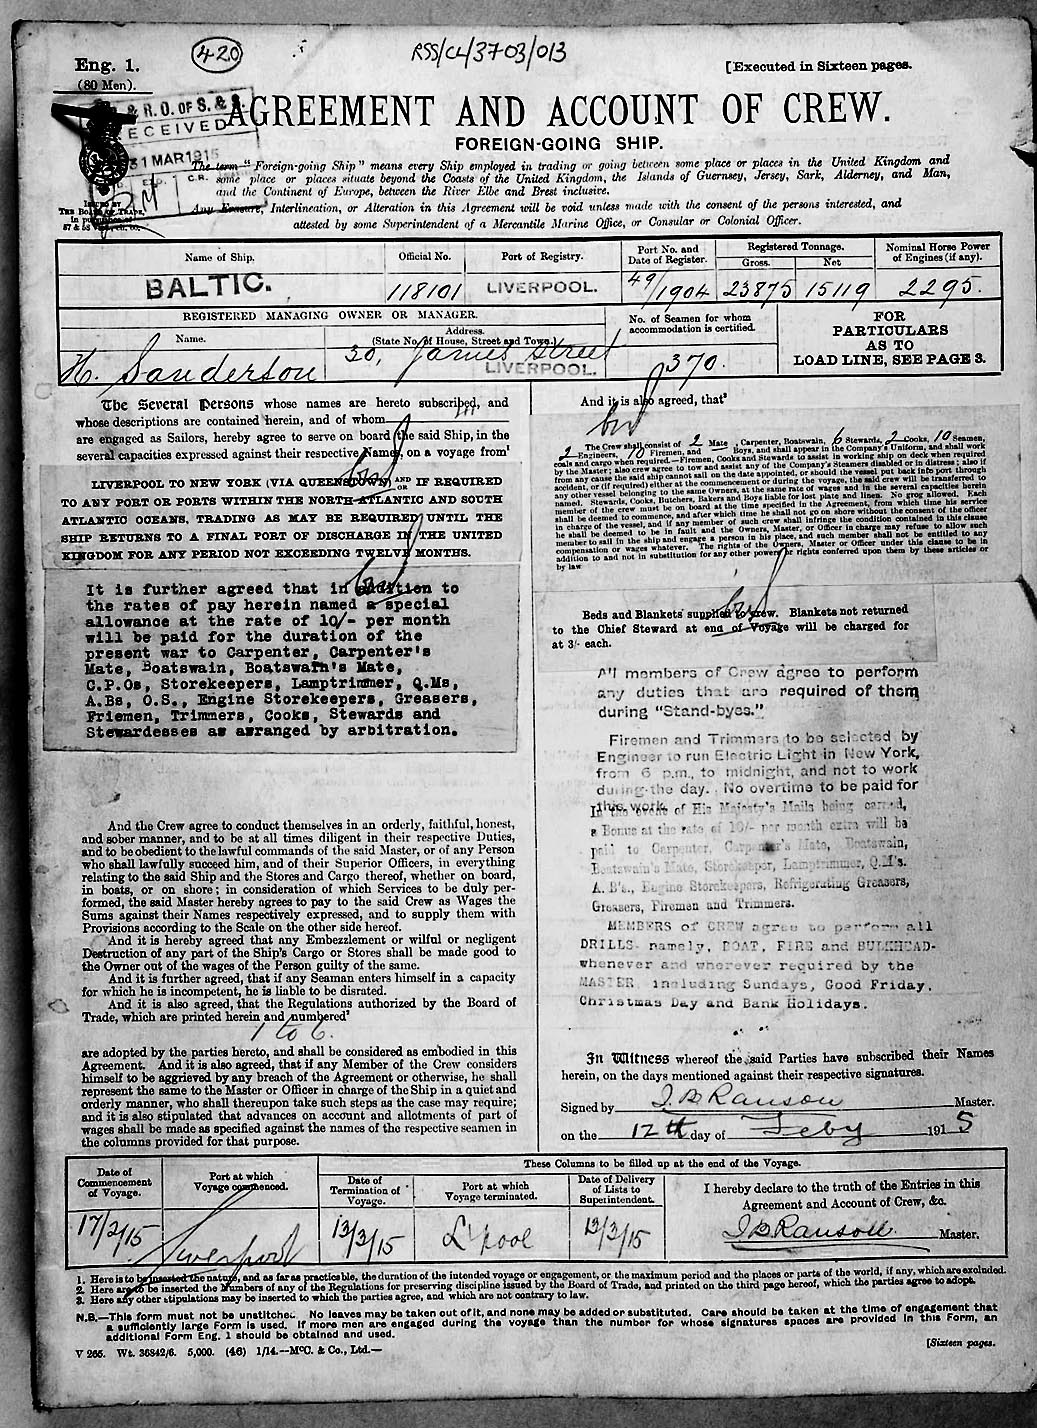 420
RSS/CL/3703/013
Eng. 1.
(80 Men).
[Executed in Sixteen pages.
& R.O. OF S. & S.
RECEIVED
31 MAR 1915
C.R.
AGREEMENT AND ACCOUNT OF CREW.
FOREIGN-GOING SHIP.
The term "Foreign-going Ship" means every Ship employed in trading or going between some place or places in the United Kingdom and
some place or places situate beyond the Coasts of the United Kingdom, the Islands of Guernsey, Jersey, Sark, Alderney, and Man,
and the Continent of Europe, between the River Elbe and Brest inclusive.
Any Erasure, Interlineation, or Alteration in this Agreement will be void unless made with the consent of the persons interested, and
attested by some Superintendent of a Mercantile Marine Office, or Consular or Colonial Officer.
ISSUED BY
THE BOARD OF TRADE,
in pursuance of
57 & 58 Vict., ch. 60.
Name of Ship.
Official No.
Port of Registry.
Port No. and
Date of Register.
Registered Tonnage.
Gross.
Net
Nominal Horse Power
of Engines (if any).
BALTIC.
118101
LIVERPOOL.
49/1904
23875
15119
2295.
REGISTERED MANAGING OWNER OR MANAGER.
Name.
Address.
(State No. of House, Street and Town.)
No. of Seamen for whom
accommodation is certified.
FOR
PARTICULARS
AS TO
LOAD LINE, SEE PAGE 3.
H. Sanderson
30, James Street
LIVERPOOL.
370.
The Several Persons whose names are hereto subscribed, and
whose descriptions are contained herein, and of whom
are engaged as Sailors, hereby agree to serve on board the said Ship, in the
several capacities expressed against their respective Names, on a voyage from¹
LIVERPOOL TO NEW YORK (VIA QUEENSTOWN) AND OR IF REQUIRED
TO ANY PORT OR PORTS WITHIN THE NORTH ATLANTIC AND SOUTH
ATLANTIC OCEANS, TRADING AS MAY BE REQUIRED UNTIL THE
SHIP RETURNS TO A FINAL PORT OF DISCHARGE IN THE UNITED
KINGDOM FOR ANY PERIOD NOT EXCEEDING TWELVE MONTHS.
It is further agreed that in addition to
the rates of pay herein named a special
allowance at the rate of 10/- per month
will be paid for the duration of the
present war to Carpenter, Carpenter's
Mate, Boatswain, Boatswain's Mate,
C.P.Os, Storekeepers, Lamptrimmer, Q.Ms,
A.Bs, O.S., Engine Storekeepers, Greasers,
Friemen, Trimmers, Cooks, Stewards and
Stewardesses as arranged by arbitration.
And the Crew agree to conduct themselves in an orderly, faithful, honest,
and sober manner, and to be at all times diligent in their respective Duties,
and to be obedient to the lawful commands of the said Master, or of any Person
who shall lawfully succeed him, and of their Superior Officers, in everything
relating to the said Ship and the Stores and Cargo thereof, whether on board,
in boats, or on shore; in consideration of which Services to be duly per-
formed, the said Master hereby agrees to pay to the said Crew as Wages the
Sums against their Names respectively expressed, and to supply them with
Provisions according to the Scale on the other side hereof.
And it is hereby agreed that any Embezzlement or wilful or negligent
Destruction of any part of the Ship's Cargo or Stores shall be made good to
the Owner out of the wages of the Person guilty of the same.
And it is further agreed, that if any Seaman enters himself in a capacity
for which he is incompetent, he is liable to be disrated.
And it is also agreed, that the Regulations authorized by the Board of
Trade, which are printed herein and numbered²
1 to 6.
are adopted by the parties hereto, and shall be considered as embodied in this
Agreement. And it is also agreed, that if any Member of the Crew considers
himself to be aggrieved by any breach of the Agreement or otherwise, he shall
represent the same to the Master or Officer in charge of the Ship in a quiet and
orderly manner, who shall thereupon take such steps as the case may require;
and it is also stipulated that advances on account and allotments of part of
wages shall be made as specified against the names of the respective seamen in
the columns provided for that purpose.
And it is also agreed, that³
The Crew shall consist of 2 Mate, Carpenter, Boatswain, 6 Stewards, 2 Cooks, 10 Seamen,
2 Engineers, 10 Firemen, and — Boys, and shall appear in the Company's Uniform, and shall work
coals and cargo when required.—Firemen, Cooks and Stewards to assist in working ship on deck when required
by the Master; also crew agree to tow and assist any of the Company's Steamers disabled or in distress; also if
from any cause the said ship cannot sail on the date appointed, or should the vessel put back into port through
accident, or (if required) either at the commencement or during the voyage, the said crew will be transferred to
any other vessel belonging to the same Owners, at the same rate of wages and in the several capacities herein
named. Stewards, Cooks, Butchers, Bakers and Boys liable for lost plate and linen. No grog allowed. Each
member of the crew must be on board at the time specified in the Agreement, from which time his service
shall be deemed to commence, and after which time he shall not go on shore without the consent of the officer
in charge of the vessel, and if any member of such crew shall infringe the condition contained in this clause
he shall be deemed to be in fault and the Owners, Master, or Officer in charge may refuse to allow such
member to sail in the ship and engage a person in his place, and such member shall not be entitled to any
compensation or wages whatever. The rights of the Owners, Master or Officer under this clause to be in
addition to and not in substitution for any other power or rights conferred upon them by these articles or
by law
Beds and Blankets supplied to crew. Blankets not returned
to the Chief Steward at end of Voyage will be charged for
at 3/- each.
All members of Crew agree to perform
any duties that are required of them
during "Stand-byes."
Firemen and Trimmers to be selected by
Engineer to run Electric Light in New York,
from 6 p.m., to midnight, and not to work
during the day. No overtime to be paid for
this work.
In the event of His Majesty's Mails being carried,
a Bonus at the rate of 10/- per month extra will be
paid to Carpenter, Carpenter's Mate, Boatswain,
Boatswain's Mate, Storekeeper, Lamptrimmer, Q.M's.
A.B's., Engine Storekeepers, Refrigerating Greasers,
Greasers, Firemen and Trimmers.
MEMBERS of CREW agree to perform all
DRILLS- namely, BOAT, FIRE and BULKHEAD-
whenever and wherever required by the
MASTER, including Sundays, Good Friday,
Christmas Day and Bank Holidays.
In Witness whereof the said Parties have subscribed their Names
herein, on the days mentioned against their respective signatures.
Signed by J B Ranson Master.
on the 12th day of Feby 1915
Date of
Commencement
of Voyage.
Port at which
Voyage commenced.
These Columns to be filled up at the end of the Voyage.
Date of
Termination of
Voyage.
Port at which
Voyage terminated.
Date of Delivery
of Lists to
Superintendent.
I hereby declare to the truth of the Entries in this
Agreement and Account of Crew, &c.
17/2/15
Liverpool
13/3/15
L'pool
13/3/15
J B Ranson. Master.
1. Here is to be inserted the nature, and as far as practicable, the duration of the intended voyage or engagement, or the maximum period and the places or parts of the world, if any, which are excluded.
2. Here are to be inserted the Numbers of any of the Regulations for preserving discipline issued by the Board of Trade, and printed on the third page hereof, which the parties agree to adopt.
3. Here any other stipulations may be inserted to which the parties agree, and which are not contrary to law.
N.B.—This form must not be unstitched. No leaves may be taken out of it, and none may be added or substituted. Care should be taken at the time of engagement that
a sufficiently large Form is used. If more men are engaged during the voyage than the number for whose signatures spaces are provided in this Form, an
additional Form Eng. 1 should be obtained and used.
V 265. Wt. 36842/6. 5,000. (46) 1/14.—McC. & Co., Ltd.—
[Sixteen pages.